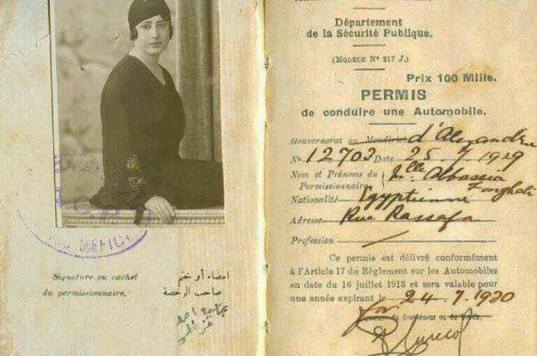 Département
de la Sécurité Publique.
(MODÈLE Nº 217 J.)
Prix 100 Mills.
PERMIS
de conduire une Automobile.
Gouvernorat ou Moudirieh d'Alexandrie
Nº 12703 Date 25.7.1929
Nom et Prénoms du Permissionnaire Mlle Abbassia Farghali
Nationalité Egyptienne
Adresse Rue Rassafa
Profession
Ce permis est délivré conformément
à l'Article 17 du Règlement sur les Automobiles
en date du 16 juillet 1913 et sera valable pour
une année expirant le 24.7.1930
for
Signature ou cachet
du permissionnaire.
امضاء أو ختم
صاحب الرخصة